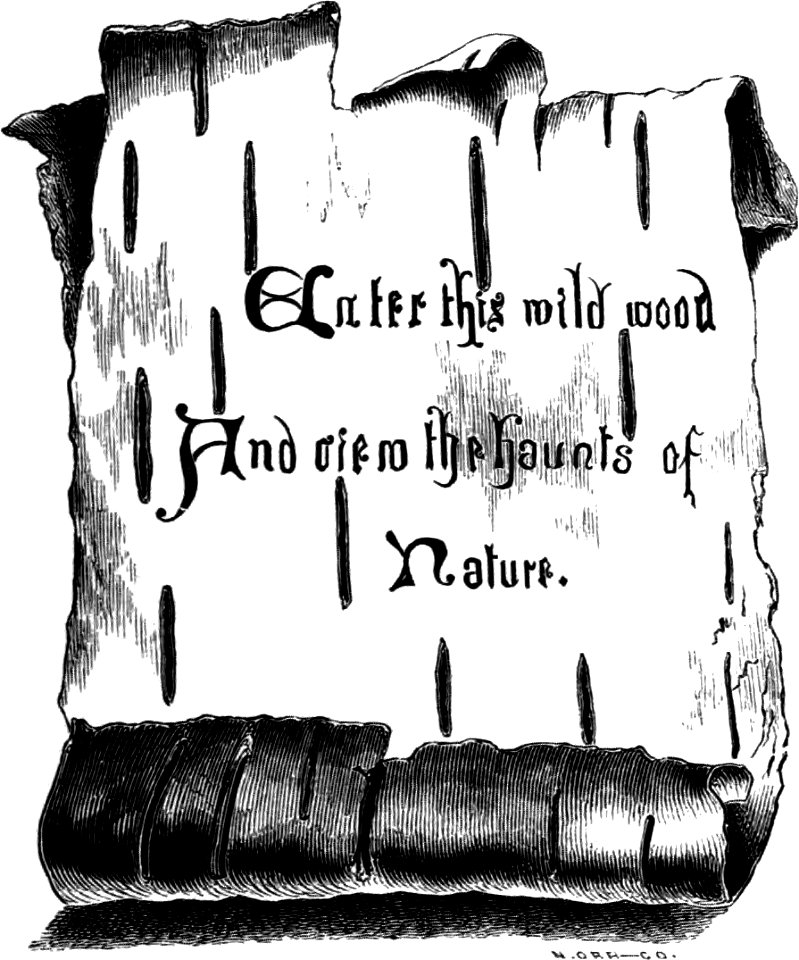 Enter this wild wood
And view the haunts of
Nature.
N. ORR—CO.